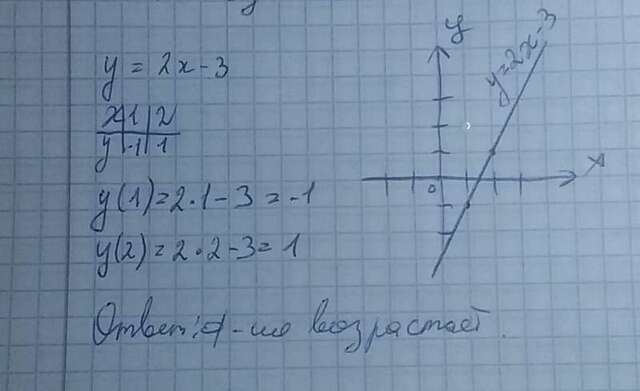 y = 2x - 3
x 1 2
y -1 1
y(1) = 2·1 - 3 = -1
y(2) = 2·2 - 3 = 1
Ответ: ф-ия возрастает.
y
y=2x-3
x
0